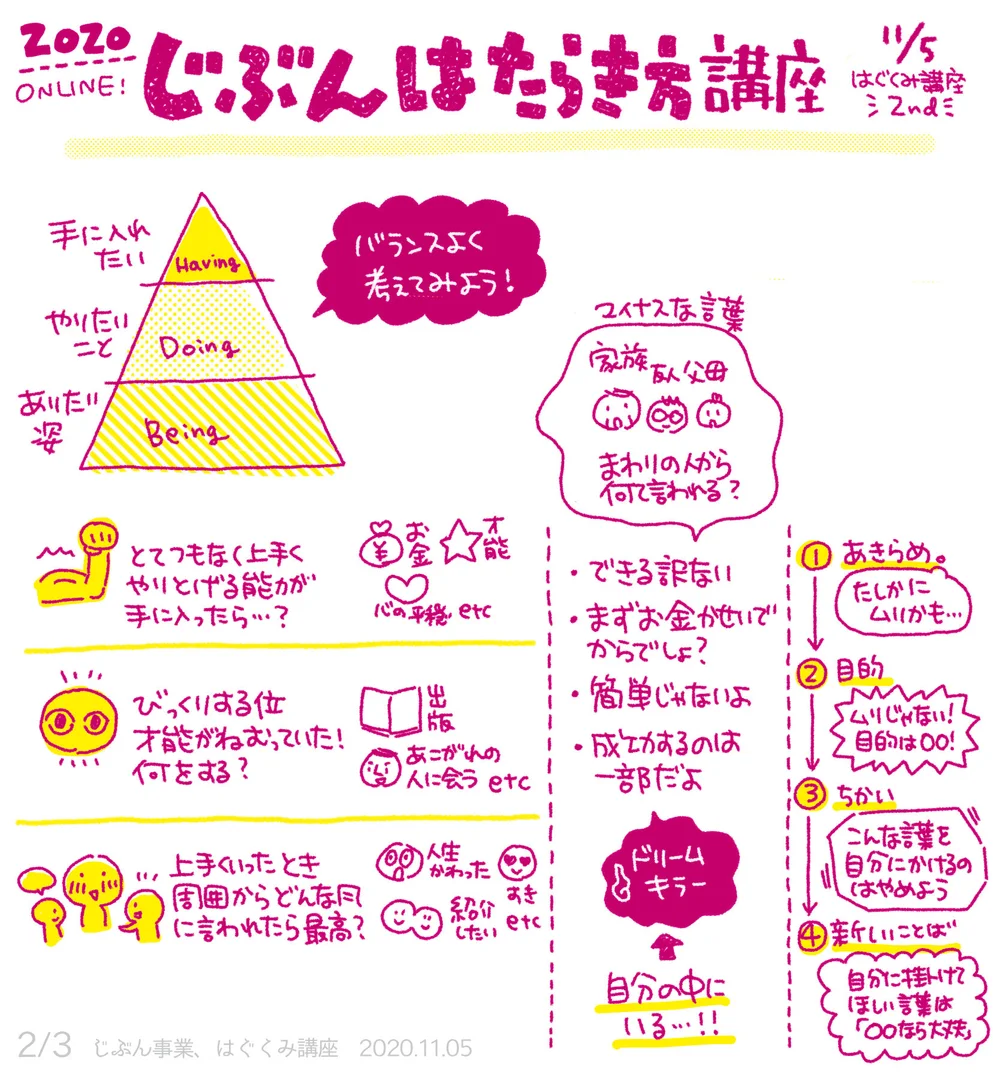 2020
ONLINE!
じぶんはたらき方講座
11/5
はぐくみ講座
2nd
手に入れ
たい
Having
やりたい
こと
Doing
ありたい
姿
Being
バランスよく
考えてみよう!
とてつもなく上手く
やりとげる能力が
手に入ったら…?
¥
お
金
才
能
心の平穏 etc
びっくりする位
才能がねむっていた!
何をする?
出
版
あこがれの
人に会う etc
上手くいったとき
周囲からどんな風
に言われたら最高?
人生
かわった
すき
紹介
したい
etc
マイナスな言葉
家族 友人 父母
まわりの人から
何て言われる?
・できる訳ない
・まずお金かせいで
からでしょ?
・簡単じゃないよ
・成功するのは
一部だよ
ドリーム
キラー
自分の中に
いる…!!
① あきらめ。
たしかに
ムリかも…
② 目的
ムリじゃない!
目的は〇〇!
③ ちかい
こんな言葉を
自分にかけるの
はやめよう
④ 新しいことば
自分に掛けて
ほしい言葉は
「〇〇なら大丈夫」
2/3 じぶん事業、はぐくみ講座 2020.11.05